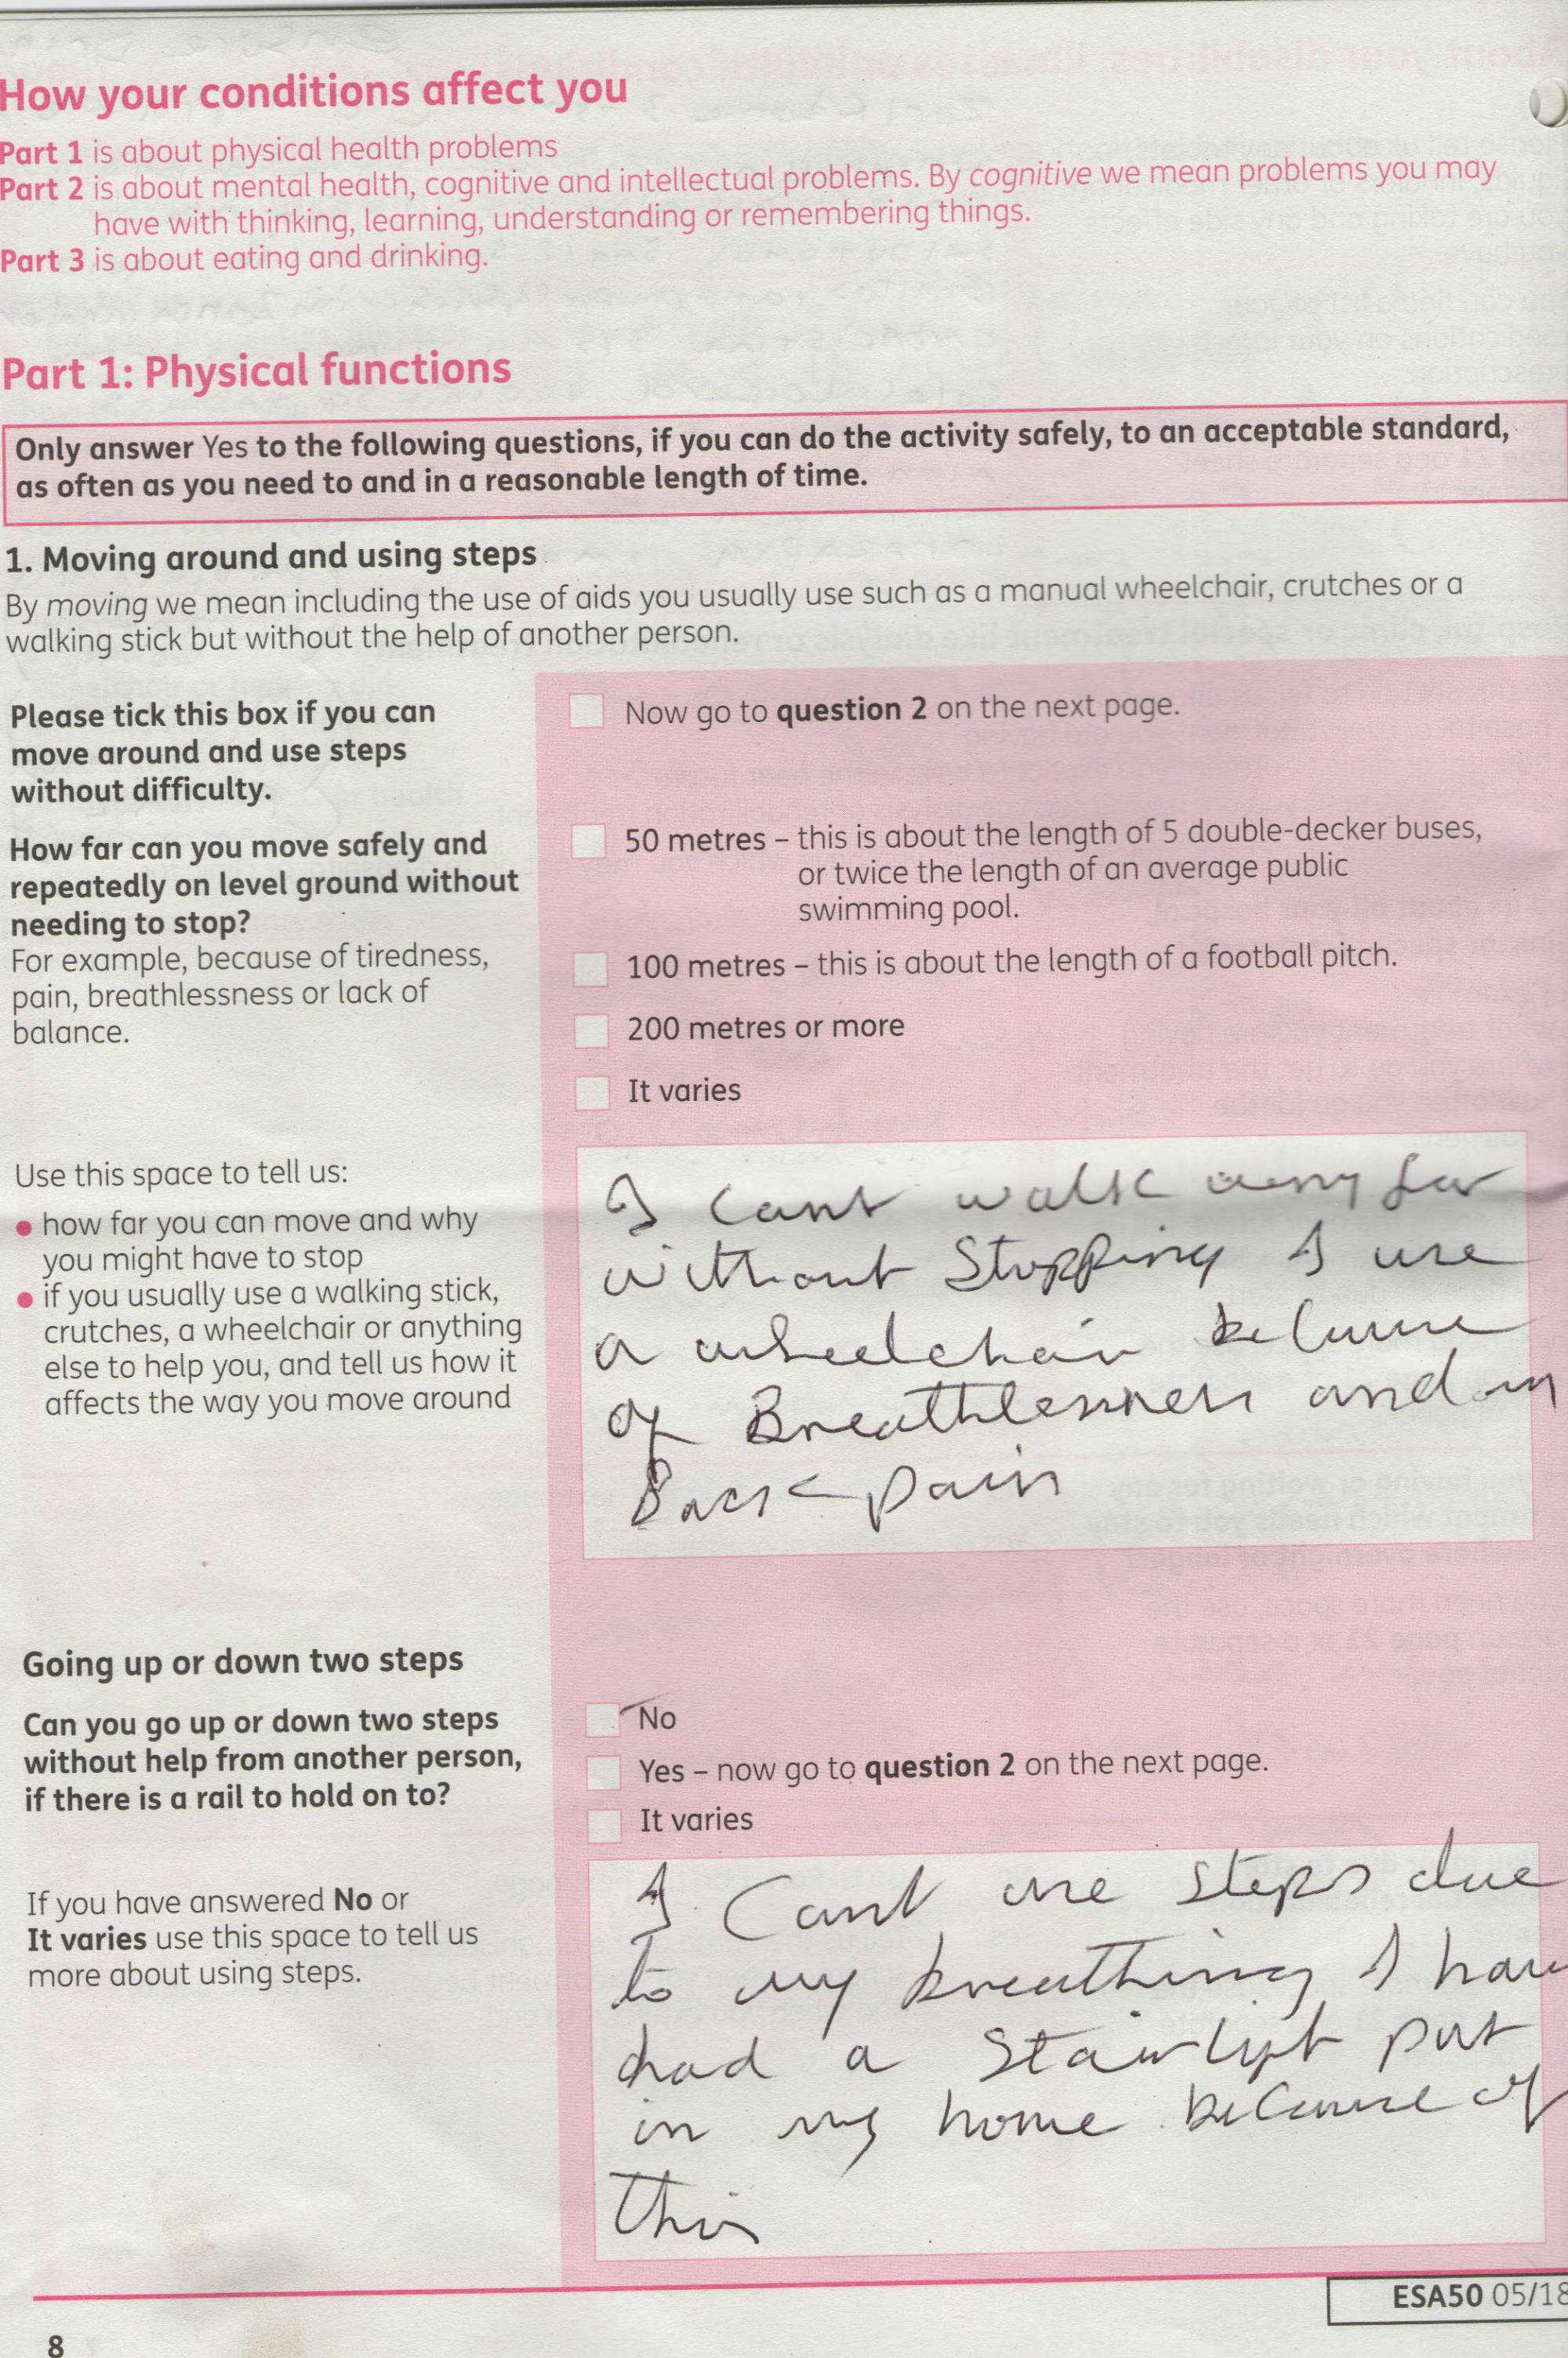 How your conditions affect you
Part 1 is about physical health problems
Part 2 is about mental health, cognitive and intellectual problems. By cognitive we mean problems you may
have with thinking, learning, understanding or remembering things.
Part 3 is about eating and drinking.
Part 1: Physical functions
Only answer Yes to the following questions, if you can do the activity safely, to an acceptable standard,
as often as you need to and in a reasonable length of time.
1. Moving around and using steps
By moving we mean including the use of aids you usually use such as a manual wheelchair, crutches or a
walking stick but without the help of another person.
Please tick this box if you can
move around and use steps
without difficulty.
Now go to question 2 on the next page.
How far can you move safely and
repeatedly on level ground without
needing to stop?
For example, because of tiredness,
pain, breathlessness or lack of
balance.
50 metres – this is about the length of 5 double-decker buses,
or twice the length of an average public
swimming pool.
100 metres – this is about the length of a football pitch.
200 metres or more
It varies
Use this space to tell us:
• how far you can move and why
you might have to stop
• if you usually use a walking stick,
crutches, a wheelchair or anything
else to help you, and tell us how it
affects the way you move around
I cant walk very far
without stopping I use
a wheelchair because
of Breathlessness and
Back pain
Going up or down two steps
Can you go up or down two steps
without help from another person,
if there is a rail to hold on to?
No
Yes – now go to question 2 on the next page.
It varies
If you have answered No or
It varies use this space to tell us
more about using steps.
I Cant use steps due
to my breathing I have
had a Stairlift put
in my home because of
this
ESA50 05/18
8